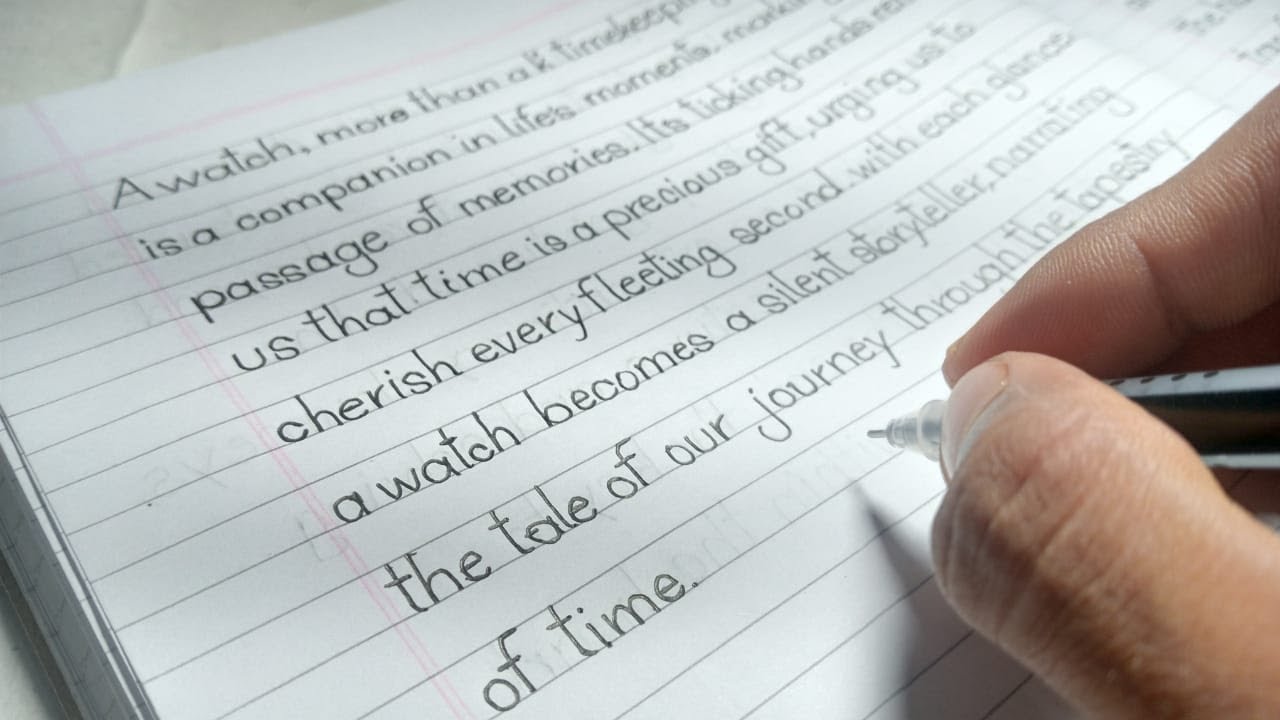 A watch, more than a k timekeeping
is a companion in life's moments, making
passage of memories. Its ticking hands
us that time is a precious gift, urging us to
cherish every fleeting second. with each glance
a watch becomes a silent storyteller, narrating
the tale of our journey through the tapestry
of time.